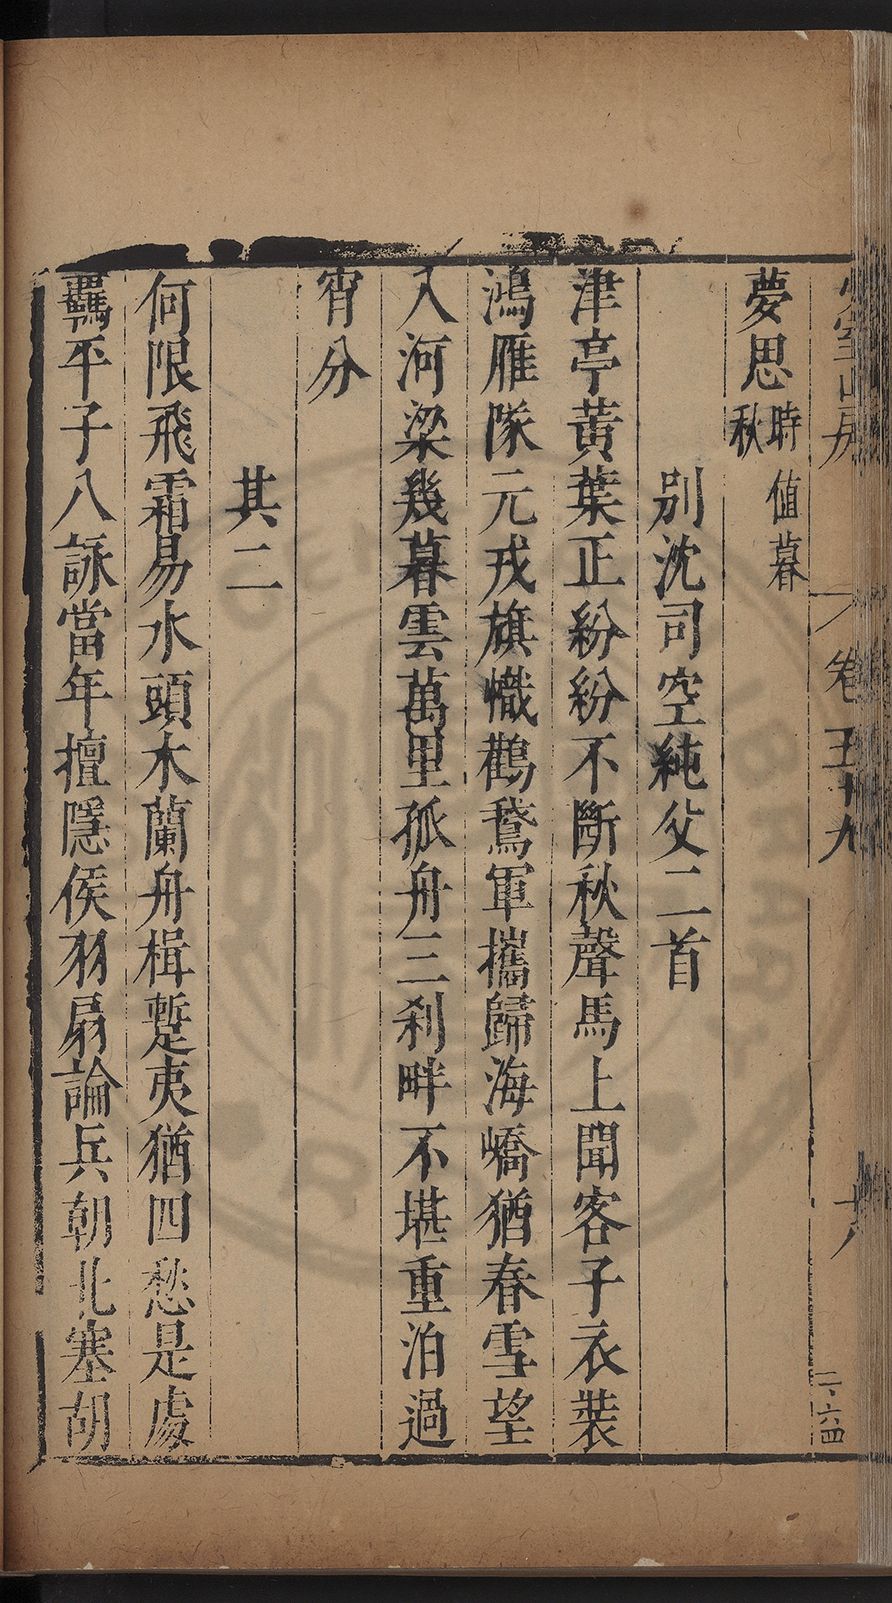 夢思時值暮秋
別沈司空純父二首
津亭黃葉正紛紛不斷秋聲馬上聞客子衣裝
鴻雁隊元戎旗幟鸛鵞軍攜歸海嶠猶春雪望
入河梁幾暮雲萬里孤舟三刹畔不堪重泊過
宵分
其二
何限飛霜易水頭木蘭舟楫蹔夷猶四愁是處
羈平子八詠當年擅隱侯羽扇論兵朝北塞胡
山房
卷五十九